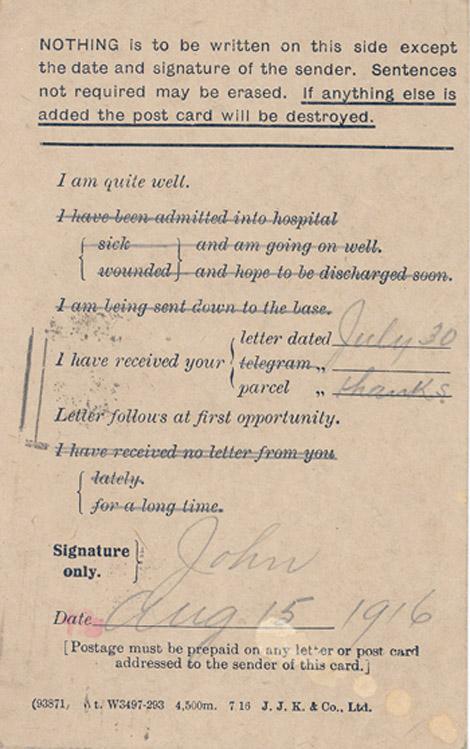 NOTHING is to be written on this side except
the date and signature of the sender. Sentences
not required may be erased. If anything else is
added the post card will be destroyed.
I am quite well.
I have been admitted into hospital
sick and am going on well.
wounded and hope to be discharged soon.
I am being sent down to the base.
letter dated July 30
I have received your telegram „
parcel „ thanks
Letter follows at first opportunity.
I have received no letter from you
lately.
for a long time.
Signature only. John
Date Aug 15 1916
[Postage must be prepaid on any letter or post card
addressed to the sender of this card.]
(93871) t. W3497-293 4,500m. 7 16 J. J. K. & Co., Ltd.